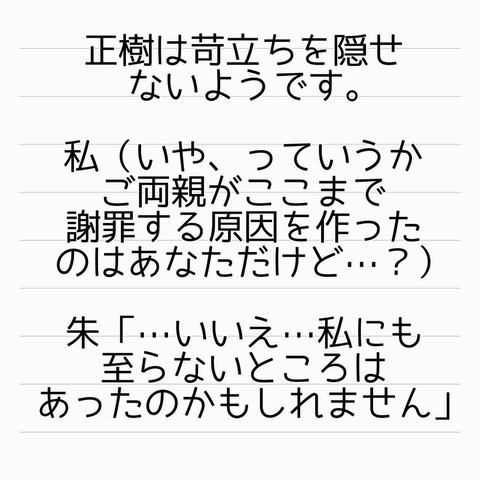 正樹は苛立ちを隠せ
ないようです。
私（いや、っていうか
ご両親がここまで
謝罪する原因を作った
のはあなただけど…？）
朱「…いいえ…私にも
至らないところは
あったのかもしれません」